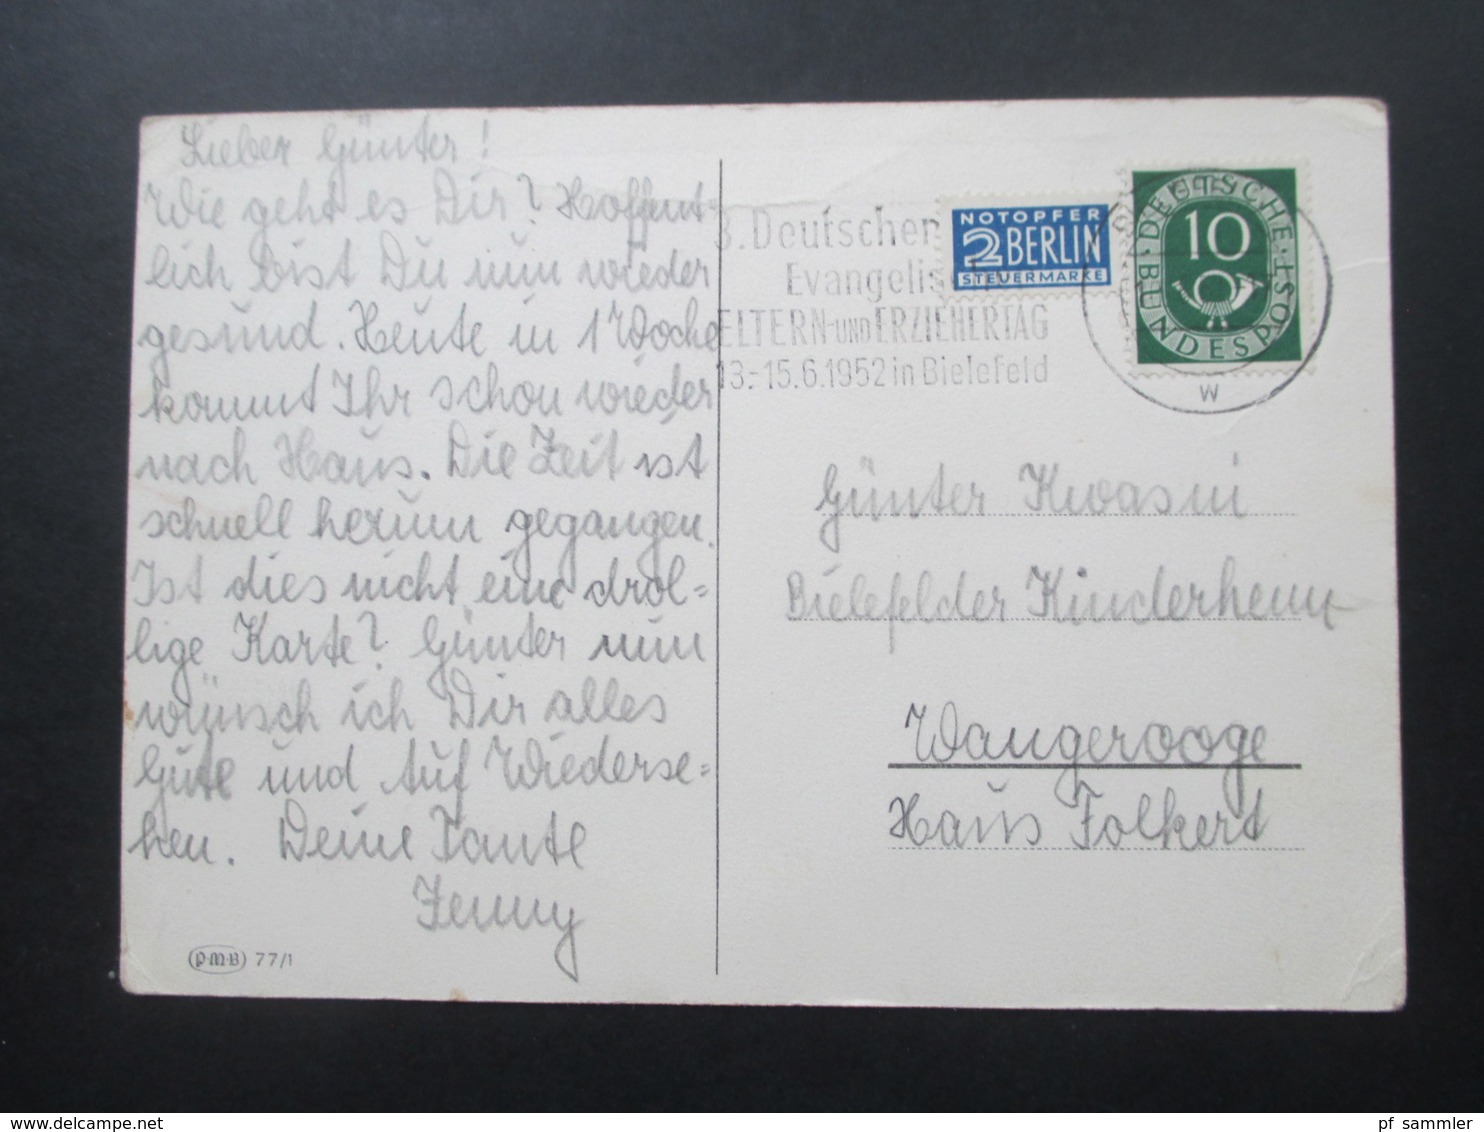 Lieber Günter!
Wie geht es Dir? Hoffent-
lich bist Du nun wieder
gesund. Heute in 1 Woche
kommt Ihr schon wieder
nach Haus. Die Zeit ist
schnell herum gegangen.
Ist dies nicht eine drol=
lige Karte? Günter nun
wünsch ich Dir alles
Gute und Auf Wiederse=
hen. Deine Tante
Jenny
P·M·B 77/1
3. Deutscher
Evangelis
ELTERN-UND ERZIEHERTAG
13.-15.6.1952 in Bielefeld
NOTOPFER
2 BERLIN
STEUERMARKE
DEUTSCHE BUNDESPOST
10
W
Günter Kwasni
Bielefelder Kinderheim
Wangerooge
Haus Folkert
delcampe.net
pf_sammler